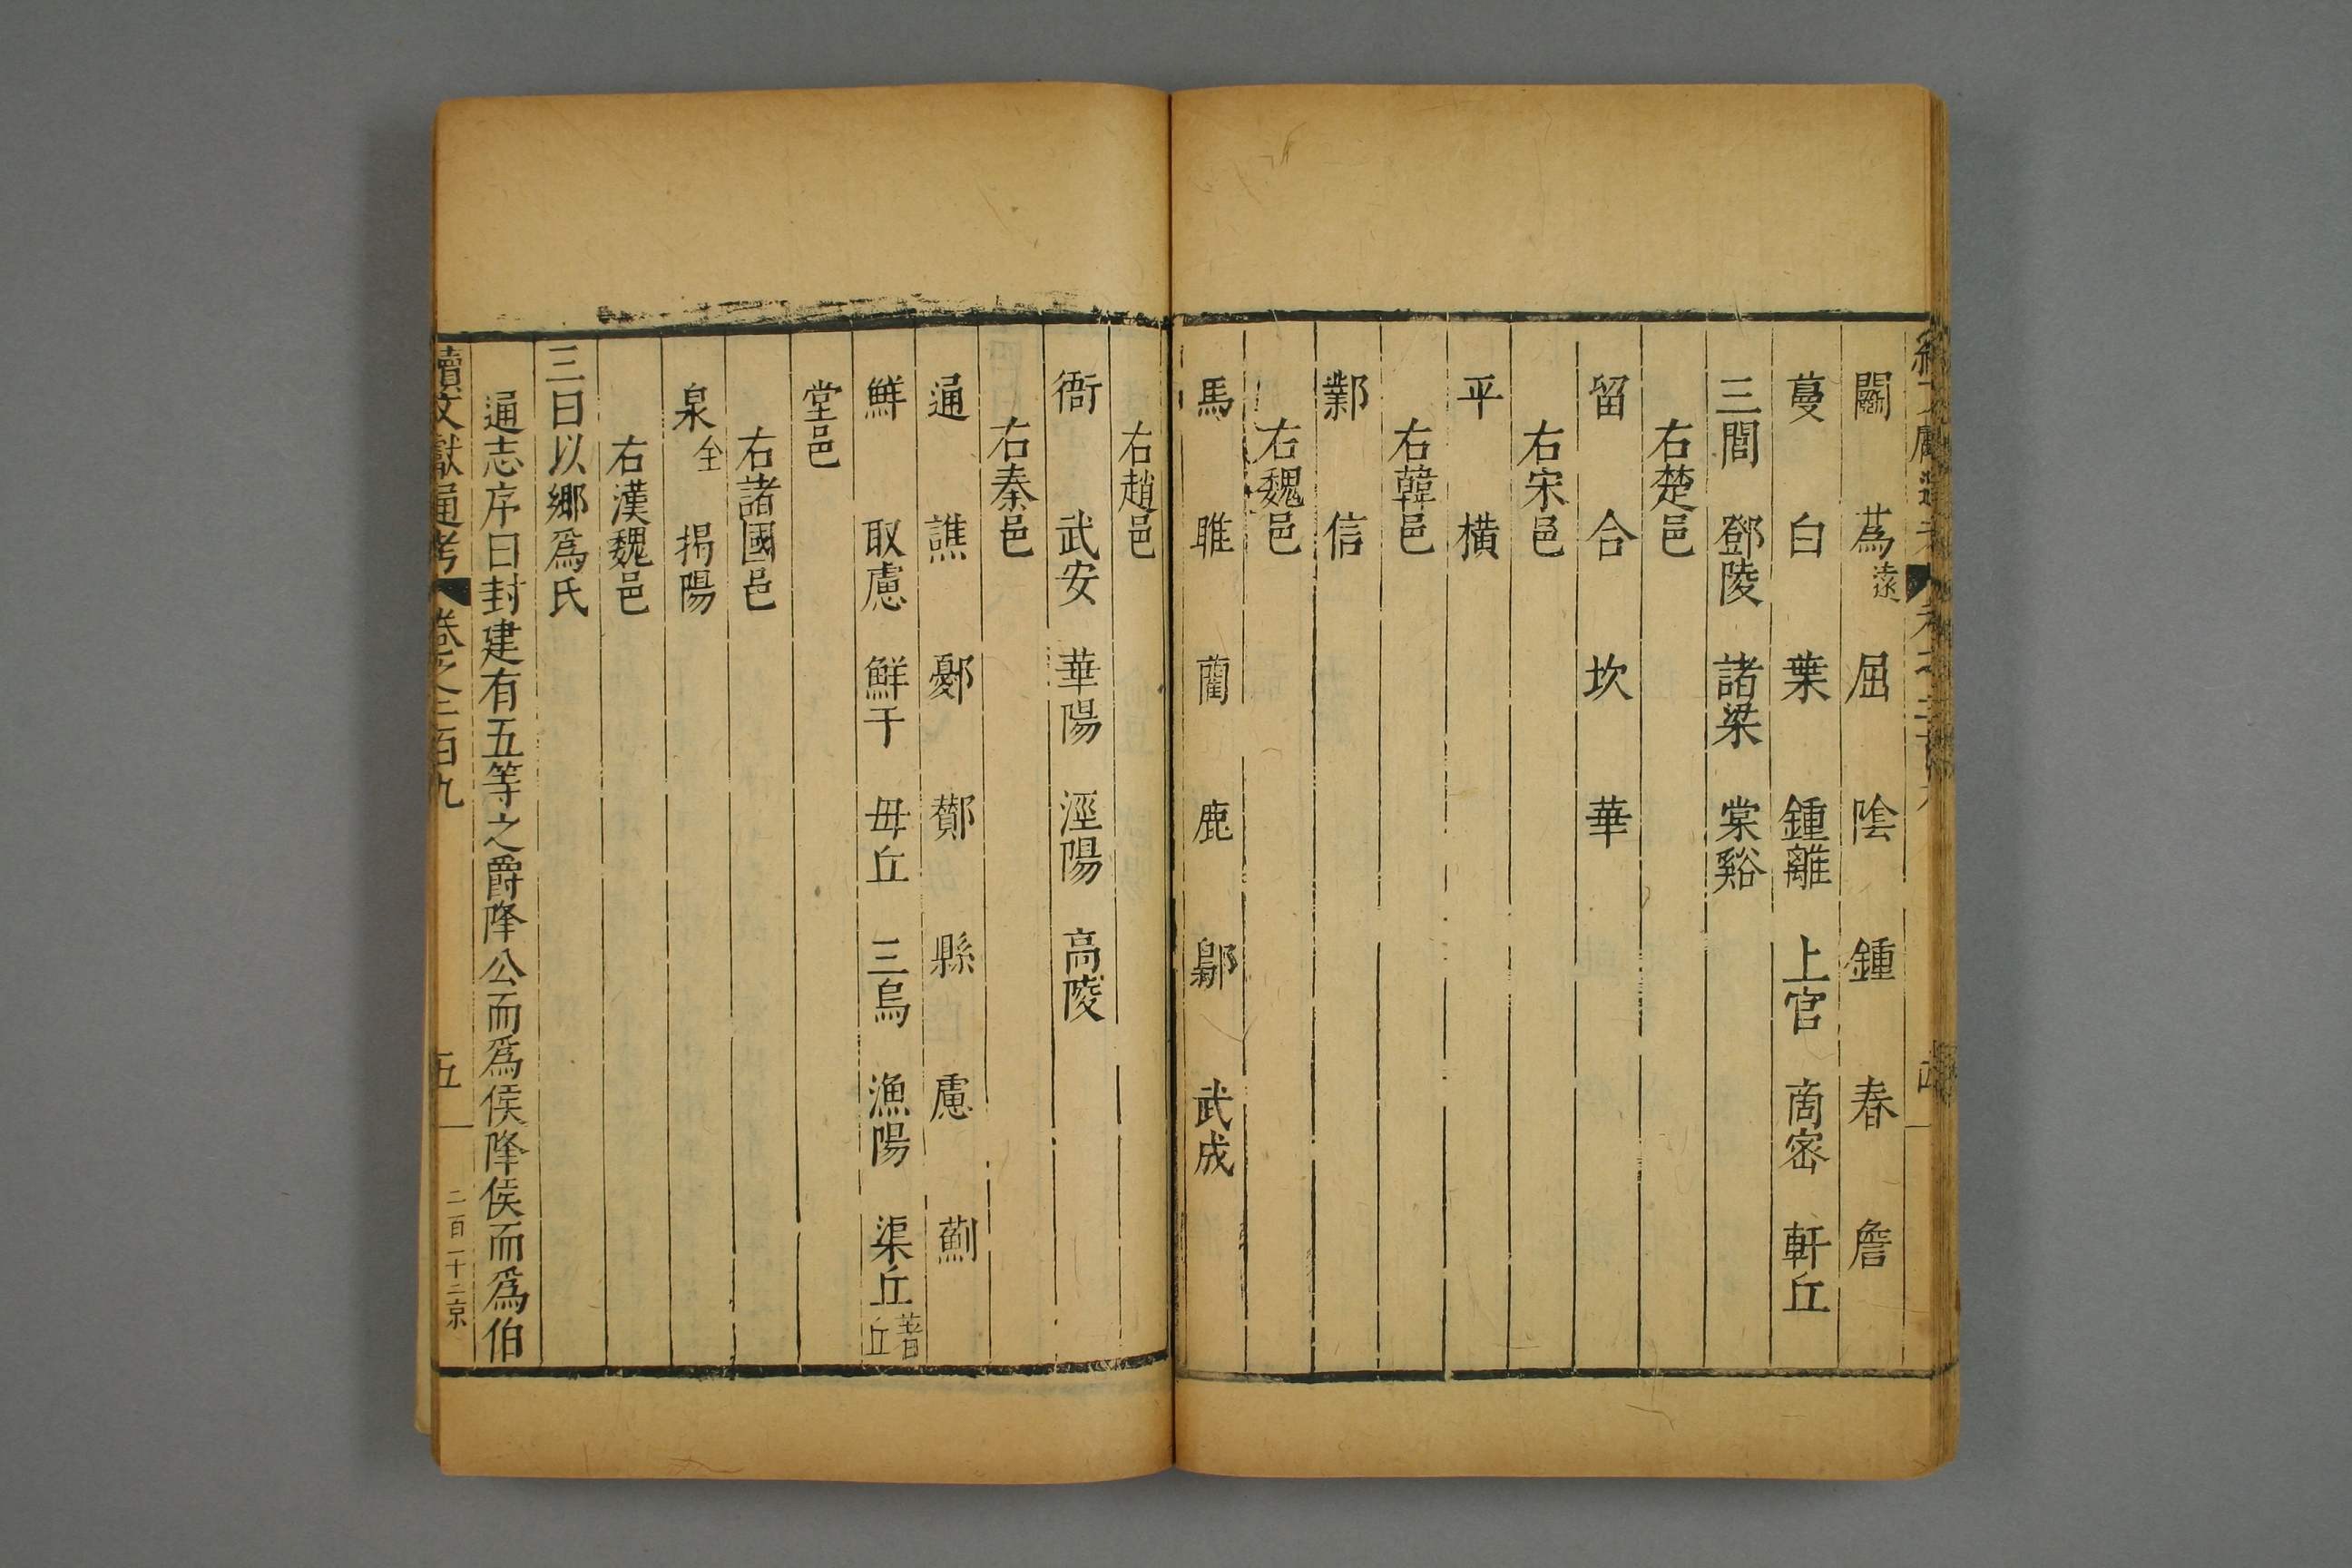 鬬　蒍遠　屈　陰　鍾　春　詹
蔓　白　葉　鍾離　上官　商密　軒丘
三閭　鄧陵　諸梁　棠谿
右楚邑
留　合　坎　華
右宋邑
平　橫
右韓邑
鄴　信
右魏邑
馬　睢　藺　鹿　鄡　武成
右趙邑
衙　武安　華陽　涇陽　高陵
右秦邑
通　譙　鄾　鄼　縣　慮　薊
鮮　取慮　鮮于　毋丘　三烏　漁陽　渠丘著丘
堂邑
右諸國邑
泉全　揭陽
右漢魏邑
三曰以鄉爲氏
通志序曰封建有五等之爵降公而爲侯降侯而爲伯
續文獻通考　卷之二百九　五　二百一十二京